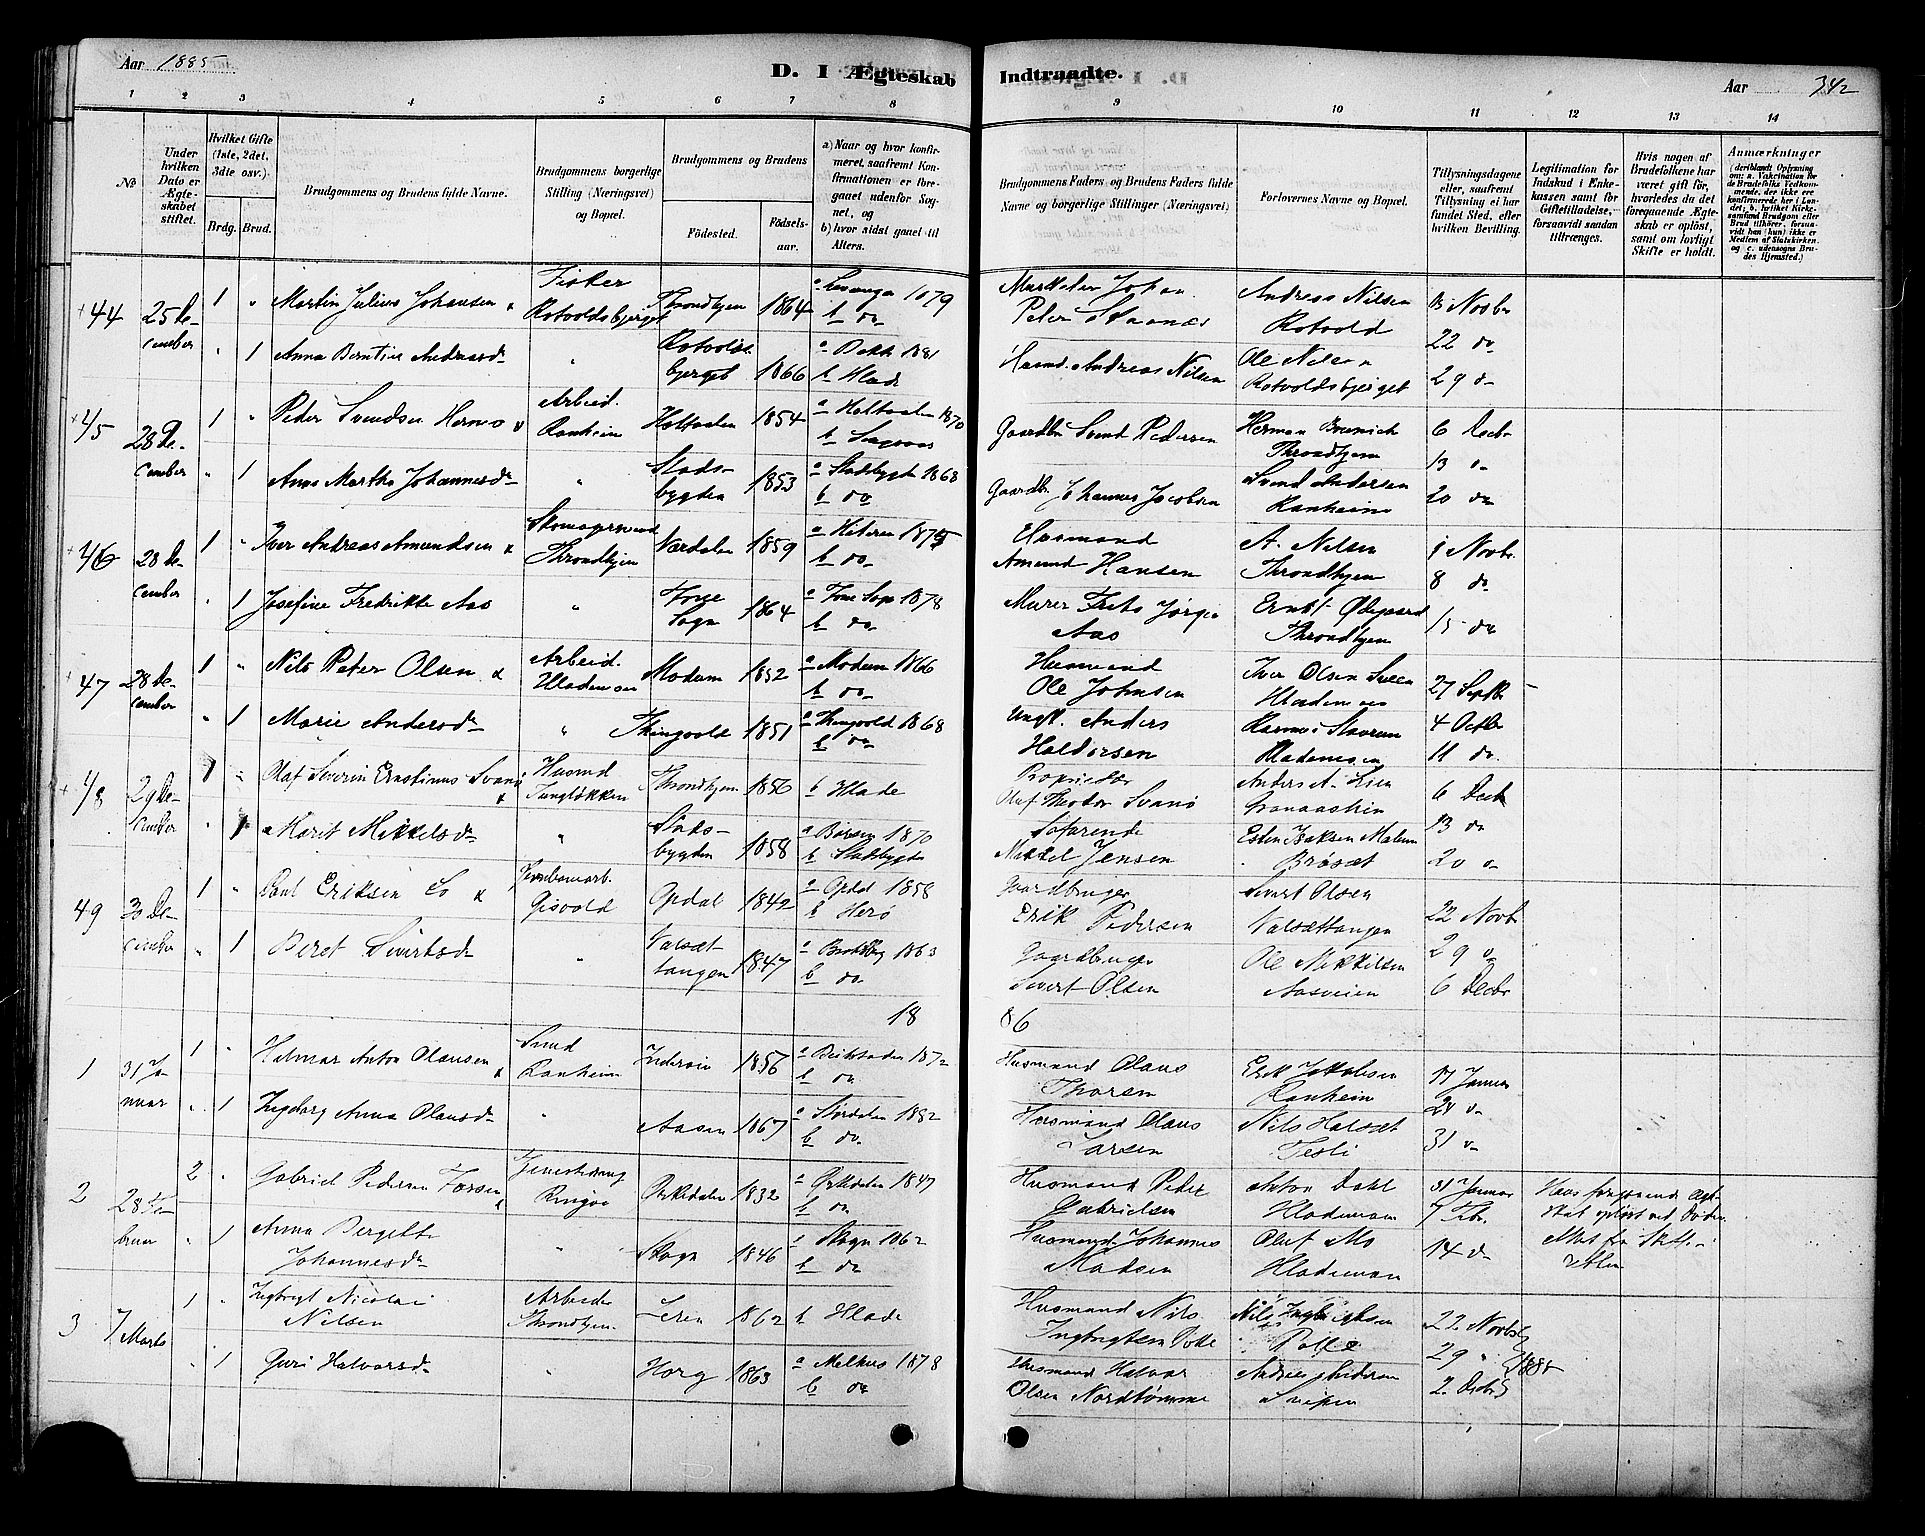 Aar 1885
D. I Ægteskab Indtraadte.
Aar 342
1 2 3 4 5 6 7 8 9 10 11 12 13 14
No
Under hvilken Dato er Ægteskabet stiftet.
Hvilket Gifte (1ste, 2det, 3die osv.)
Brdg. Brud.
Brudgommens og Brudens fulde Navne.
Brudgommens borgerlige Stilling (Næringsvei) og Bopæl.
Brudgommens og Brudens
Fødested.
Fødselsaar.
a) Naar og hvor konfirmeret, saafremt Konfirmationen er foregaaet udenfor Sognet, og
b) hvor sidst gaaet til Alters.
Brudgommens Faders og Brudens Faders fulde Navne og borgerlige Stillinger (Næringsvei)
Forlovernes Navne og Bopæl.
Tillysningsdagene eller, saafremt Tillysning ei har fundet Sted, efter hvilken Bevilling.
Legitimation for Indskud i Enkekassen samt for Giftetilladelse, forsaavidt saadan tiltrænges.
Hvis nogen af Brudefolkene har været gift før, hvorledes da det foregaaende Ægteskab er opløst, samt om lovligt Skifte er holdt.
Anmærkninger
44 25 December 1 " Martin Julius Johansen & Fisker Rotvoldsbjerget Throndhjem 1864 a Levanger 1879 b do Peter Andreas Nilsen Rotvold 15 Novbr
" 1 Anna Berntine Andreasdr " Rotvoldsbjerget 1866 a Bakke 1881 b Hlade Husmd. Andreas Nilsen Ole Nilsen Rotvoldsbjerget 22 do 29 do
45 28 December 1 " Peder Svendsen & Arbeid. Ranheim Holtaalen 1854 a Holtaalen 1870 b Gaardbr Svend Pedersen Herman Throndhjem 6 Decbr 13 do
" 1 Anne Martha Johannesdr " Stadsbygden 1853 a Stadsbygd 1868 b do Gaardbr Johannes Jacobsen Svend Andersen Ranheim 20 do
46 28 December 1 " Iver Andreas Amundsen & Skomagersvend Throndhjem Værdalen 1859 a Hiteren 1875 b do Husmand Amund Hansen A. Nilsen Throndhjem 1 Novbr 8 do
" 1 Josefine Fredrikke Aas " Frue Sogn 1864 a Frue Sogn 1878 b do Murer Frits Jørgen Aas Ernst Ødegaard Throndhjem 15 do
47 28 December 1 " Nils Peter Olsen & Arbeid. Hlademoen Modum 1852 a Modum 1866 b do Husmand Ole Johnsen Iver Olsen Hlademoen 27 Septbr
" 1 Marie Andersdr " Thingvold 1851 a Thingvold 1868 b do Ungk. Anders Haldorsen Rasmus Stavrum Hlademoen 4 Octbr 11 do
48 29 December 1 " Olaf Severin Ernstinus Svanø & Husmd Throndhjem 1856 b Hlade Proprietær Oluf Theodor Svanø Anders A. Lien Granaaslien 6 Decbr
" 1 Marit Mikkelsdr " Stadsbygden 1858 a Børsen 1870 b Stadsbygden Søfarende Mikkel Jensen Esten Isaksen Malum Brøsæt 13 do 20 do
49 30 December 1 " Paul Eriksen Lo & Jernbanearb. Gisvold Opdal 1842 a Opdal 1858 b Herø Gaardbruger Erik Pedersen Sivert Olsen Valsættangen 22 Novbr
" 1 Beret Sivertsdr " Valsættangen 1847 a 1863 b do Gaardbruger Sivert Olsen Ole Mikkelsen Aasveien 29 do 6 Decbr
18 86
1 31 Januar 1 " Hilmar Anton Olausen & Smed Ranheim Inderøen 1856 a Beitstaden 1872 b do Husmand Olaus Thoresen Erik Jakobsen Ranheim 17 Januar 24 do
" 1 Ingeborg Anna Olausdr " Aasen 1867 a Størdalen 1882 b do Husmand Olaus Larsen Nils Halsæt Tesli 31 do
2 28 Februar 2 " Gabriel Pedersen Forsen & Ringve Orkedalen 1832 a Orkedalen 1847 b do Husmand Peder Gabrielsen Anton Dahl Hlademoen 31 Januar 7 Febr. Hans foregaaende Ægteskab opløst ved Døden. Attest fra Skifteretten
" 1 Anna Bergitte Johannesdr " Skogn 1846 a Skogn 1862 b do Husmand Johannes Madsen Oluf Mo Hlademoen 14 do
3 7 Marts 1 " Ingbrigt Nicolai Nilsen Arbeider Throndhjem Leren 1862 b Hlade Husmand Nils Ingbrigtsen Nils Ingbrigtsen 22 Novbr
" 1 Guri Halvorsdr " Horg 1863 a Melhus 1878 b do Husmand Halvor Olsen Nordtømme Andreas Andersen 29 " 2 Decbr 1885